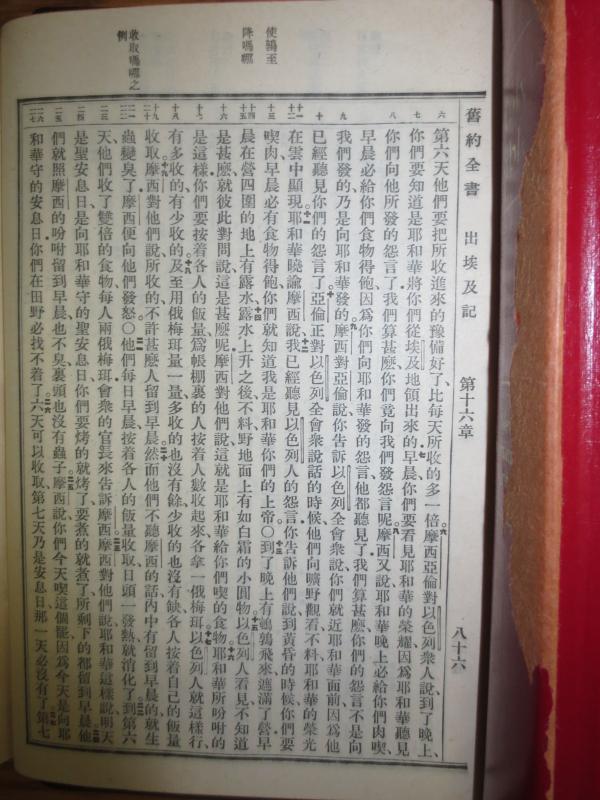 舊約全書 出埃及記 第十六章 八十六
第六天他們要把所收進來的豫備好了、比每天所收的多一倍摩西亞倫對以色列衆人說到了晚上、
你們要知道是耶和華將你們從埃及地領出來的早晨你們要看見耶和華的榮耀因爲耶和華聽見
你們向他所發的怨言了我們算甚麽、你們竟向我們發怨言呢摩西又說耶和華晚上必給你們肉喫、
早晨必給你們食物得飽因爲你們向耶和華發的怨言他都聽見了我們算甚麽、你們的怨言不是向
我們發的乃是向耶和華發的摩西對亞倫說你告訴以色列全會衆說你們就近耶和華面前因爲他
已經聽見你們的怨言了亞倫正對以色列全會衆說話的時候他們向曠野觀看不料耶和華的榮光
在雲中顯現耶和華曉諭摩西說我已經聽見以色列人的怨言你告訴他們說到黃昏的時候你們要
喫肉早晨必有食物得飽你們就知道我是耶和華你們的上帝〇到了晚上有鵪鶉飛來遮滿了營早
晨在營四圍的地上有露水露水上升之後不料野地面上有如白霜的小圓物以色列人看見不知道
是甚麽就彼此對問說這是甚麽呢摩西對他們說這就是耶和華給你們喫的食物耶和華所吩咐的
是這樣你們要按着各人的飯量爲帳棚裏的人按着人數收起來各拿一俄梅珥以色列人就這樣行、
有多收的有少收的及至用俄梅珥量一量多收的也沒有餘少收的也沒有缺各人按着自己的飯量
收取摩西對他們說所收的不許甚麽人留到早晨然而他們不聽摩西的話內中有留到早晨的就生
蟲變臭了摩西便向他們發怒〇他們每日早晨按着各人的飯量收取日頭一發熱就消化了到第六
天他們收了雙倍的食物每人兩俄梅珥會衆的官長來告訴摩西摩西對他們說耶和華這樣說明天
是聖安息日是向耶和華守的聖安息日你們要烤的就烤了要煮的就煮了所剩下的都留到早晨他
們就照摩西的吩咐留到早晨也不臭裏頭也沒有蟲子摩西說你們今天喫這個罷因爲今天是向耶
和華守的安息日你們在田野必找不着了六天可以收取第七天乃是安息日那一天必沒有了第七
使鶉至
降嗎哪
收取嗎哪之
例